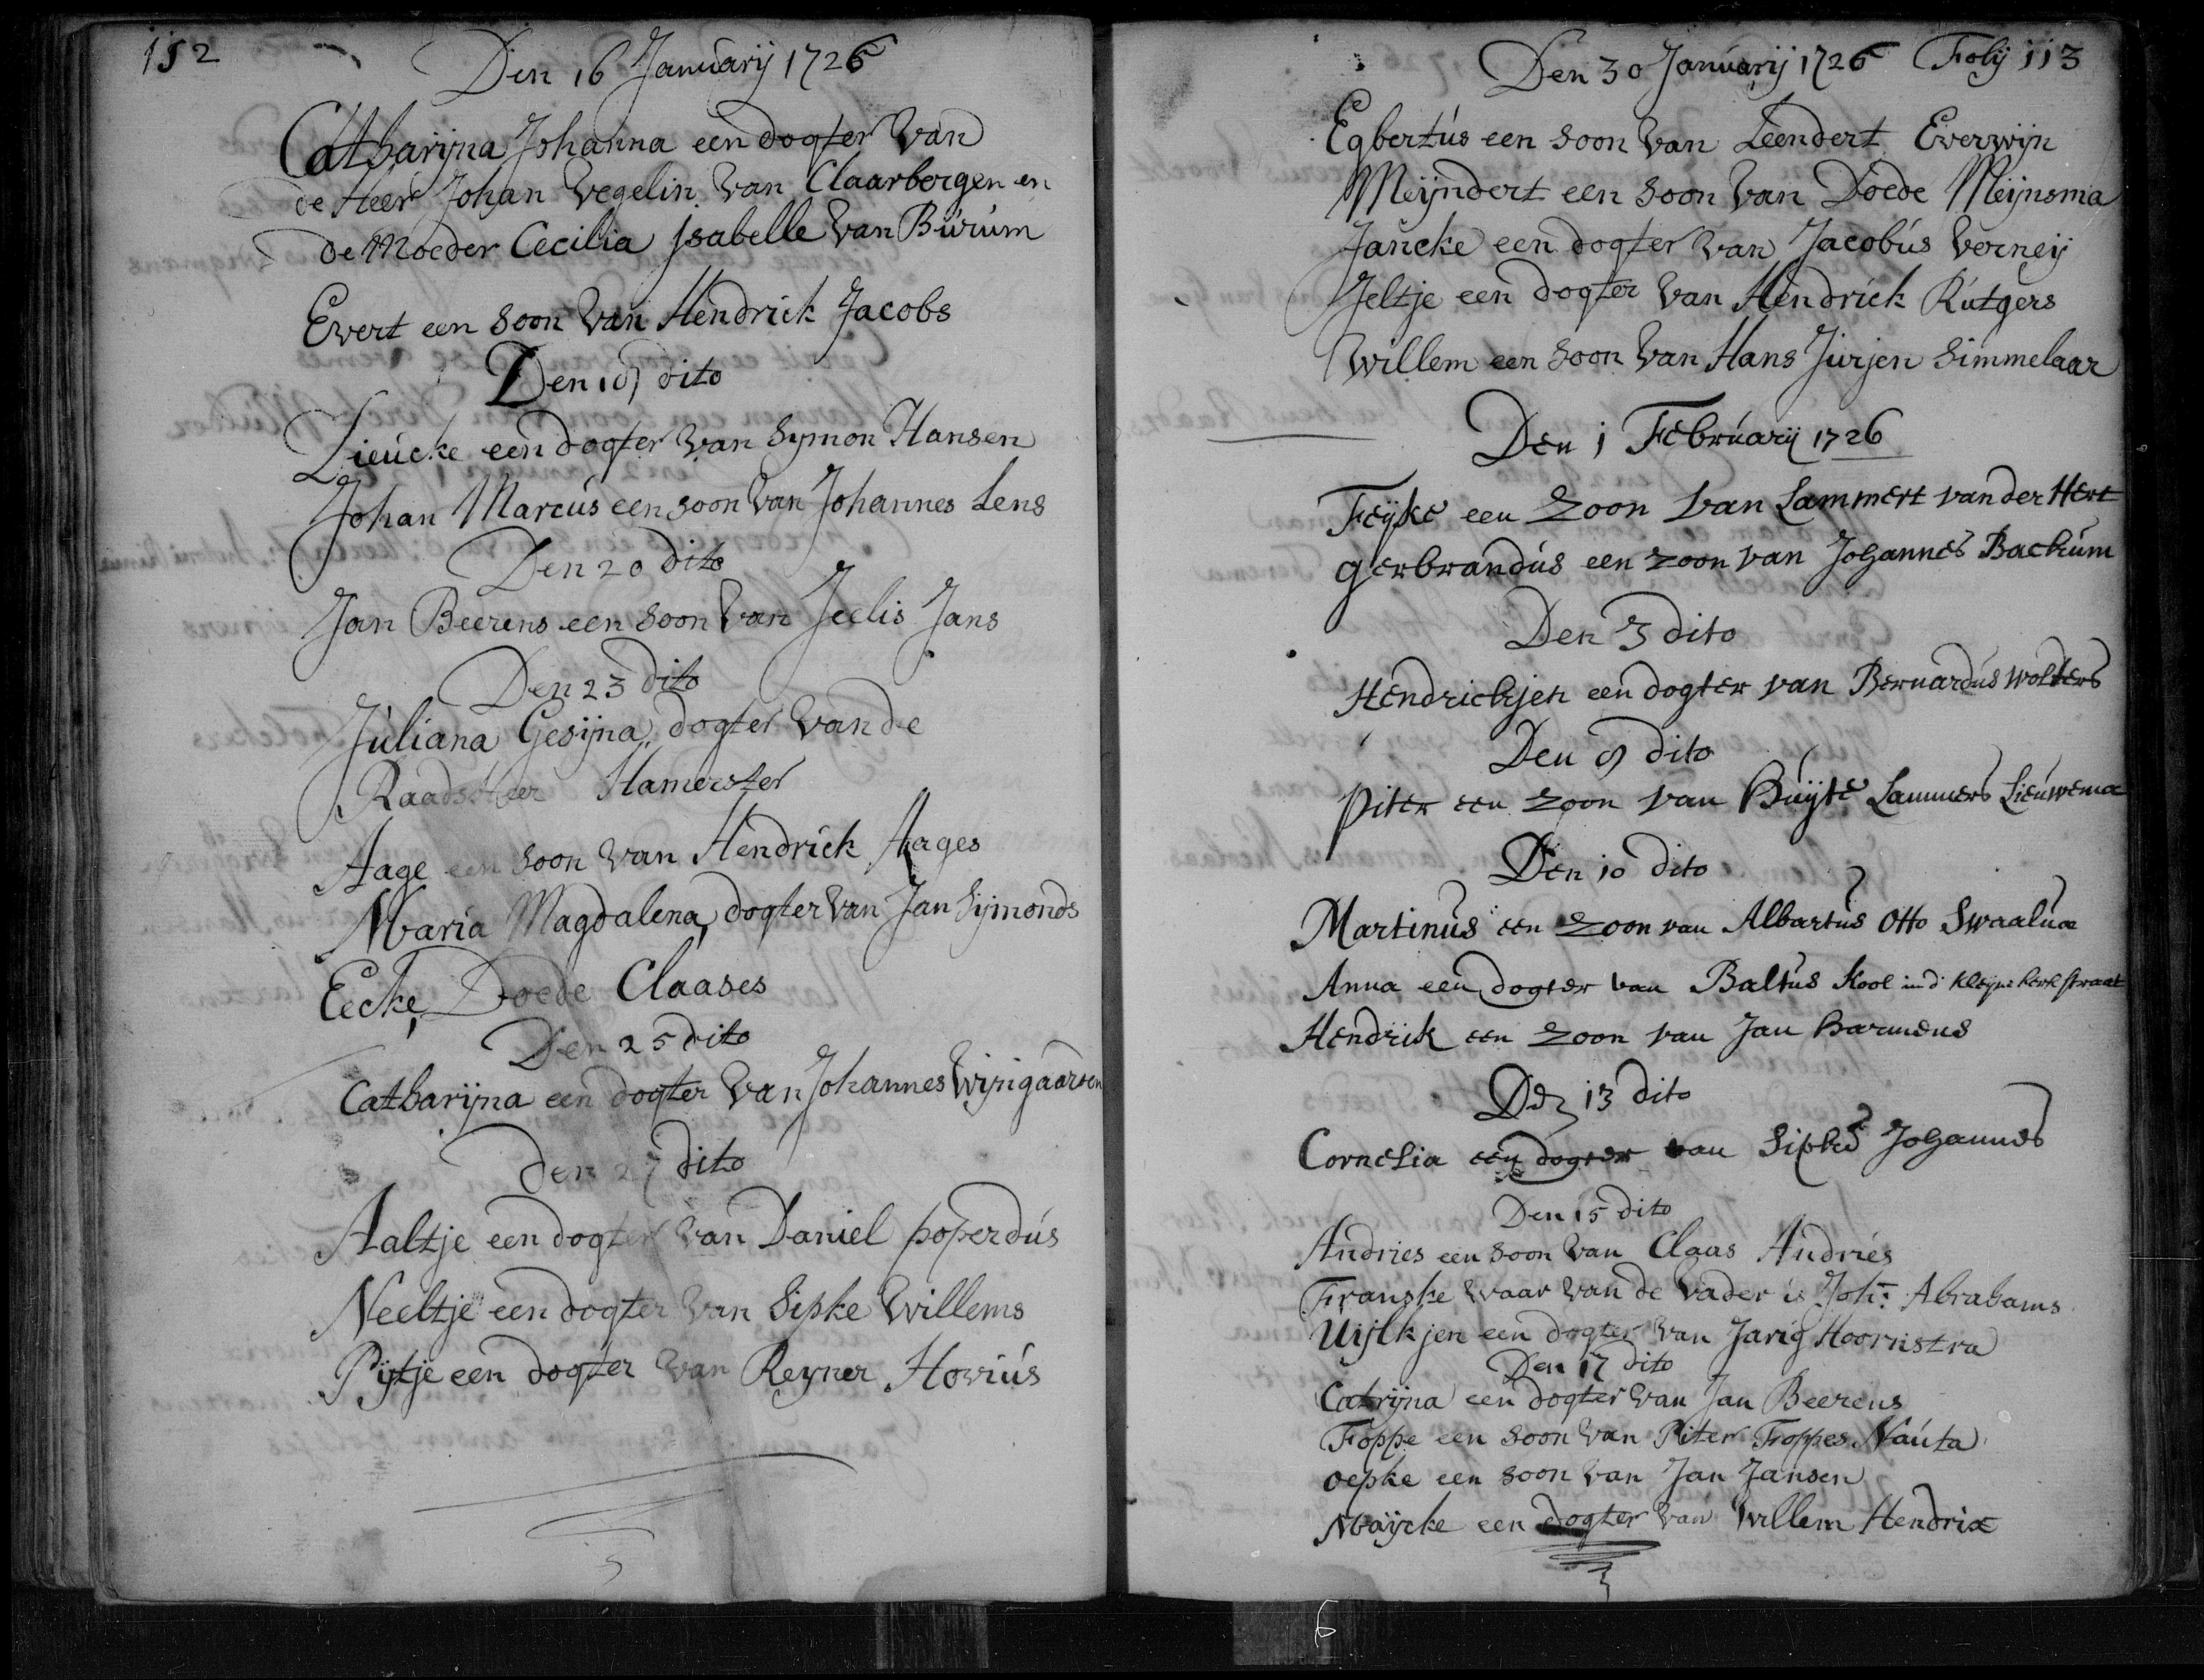 152
Den 16 Januarij 1726
Catharijna Johanna een dogter van
de Heer Johan Vegelin van Claarbergen en
de Moeder Cecilia Jsabelle van Burum
Evert een soon van Hendrick Jacobs
Den 19 dito
Lieucke een dogter van Symon Hansen
Johan Marcus een soon van Johannes Lens
Den 20 dito
Jan Beerens een soon van Jeelis Jans
Den 23 dito
Juliana Gesijna, dogter van de
Raads Heer Hamerster
Aage een soon van Hendrick Aages
Maria Magdalena, dogter van Jan Sijmonds
Eecke, Doede Claases
Den 25 dito
Catharijna een dogter van Johannes Wijngaarden
Den 27 dito
Aaltje een dogter van Daniel poperdus
Neeltje een dogter van Sipke Willems
Pijtje een dogter van Reyner Hovius
Den 30 Januarij 1726 Folij 113
Egbertus een soon van Leendert Everwijn
Meijndert een soon van Doede Meijnsma
Jancke een dogter van Jacobus Verneij
Jeltje een dogter van Hendrick Rutgers
Willem een soon van Hans Jurjen Simmelaar
Den 1 Februarij 1726
Feijke een zoon van Lammert van der Hert
gerbrandus een zoon van Johannes Backum
Den 3 dito
Hendrickjen een dogter van Bernardus Wolters
Den 9 dito
Piter een zoon van Buijte Lammers Lieuwema
Den 10 dito
Martinus een zoon van Albartus Otto Swaalue
Anna een dogter van Baltus Kool in d' kleijne kerkstraat
Hendrik een zoon van Jan Harmens
Den 13 dito
Cornelia een dogter van Sipke Johannes
Den 15 dito
Andries een soon van Claas Andries
Franske waar van de vader is Joh: Abrahams
Uijlkjen een dogter van Jarig Hoornstra
Den 17 dito
Catrijna een dogter van Jan Beerens
Foppe een soon van Piter Foppes Nauta
oepke een soon van Jan Jansen
Maijcke een dogter van Willem Hendrix